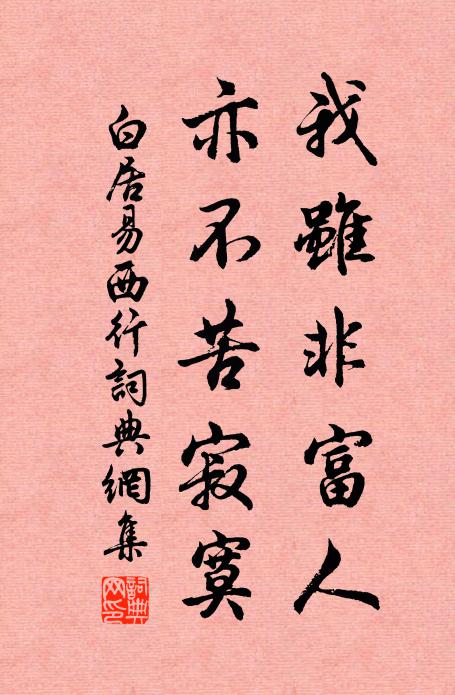 我雖非富人
亦不苦寂寞
白居易西行詞典網集
詞典網印